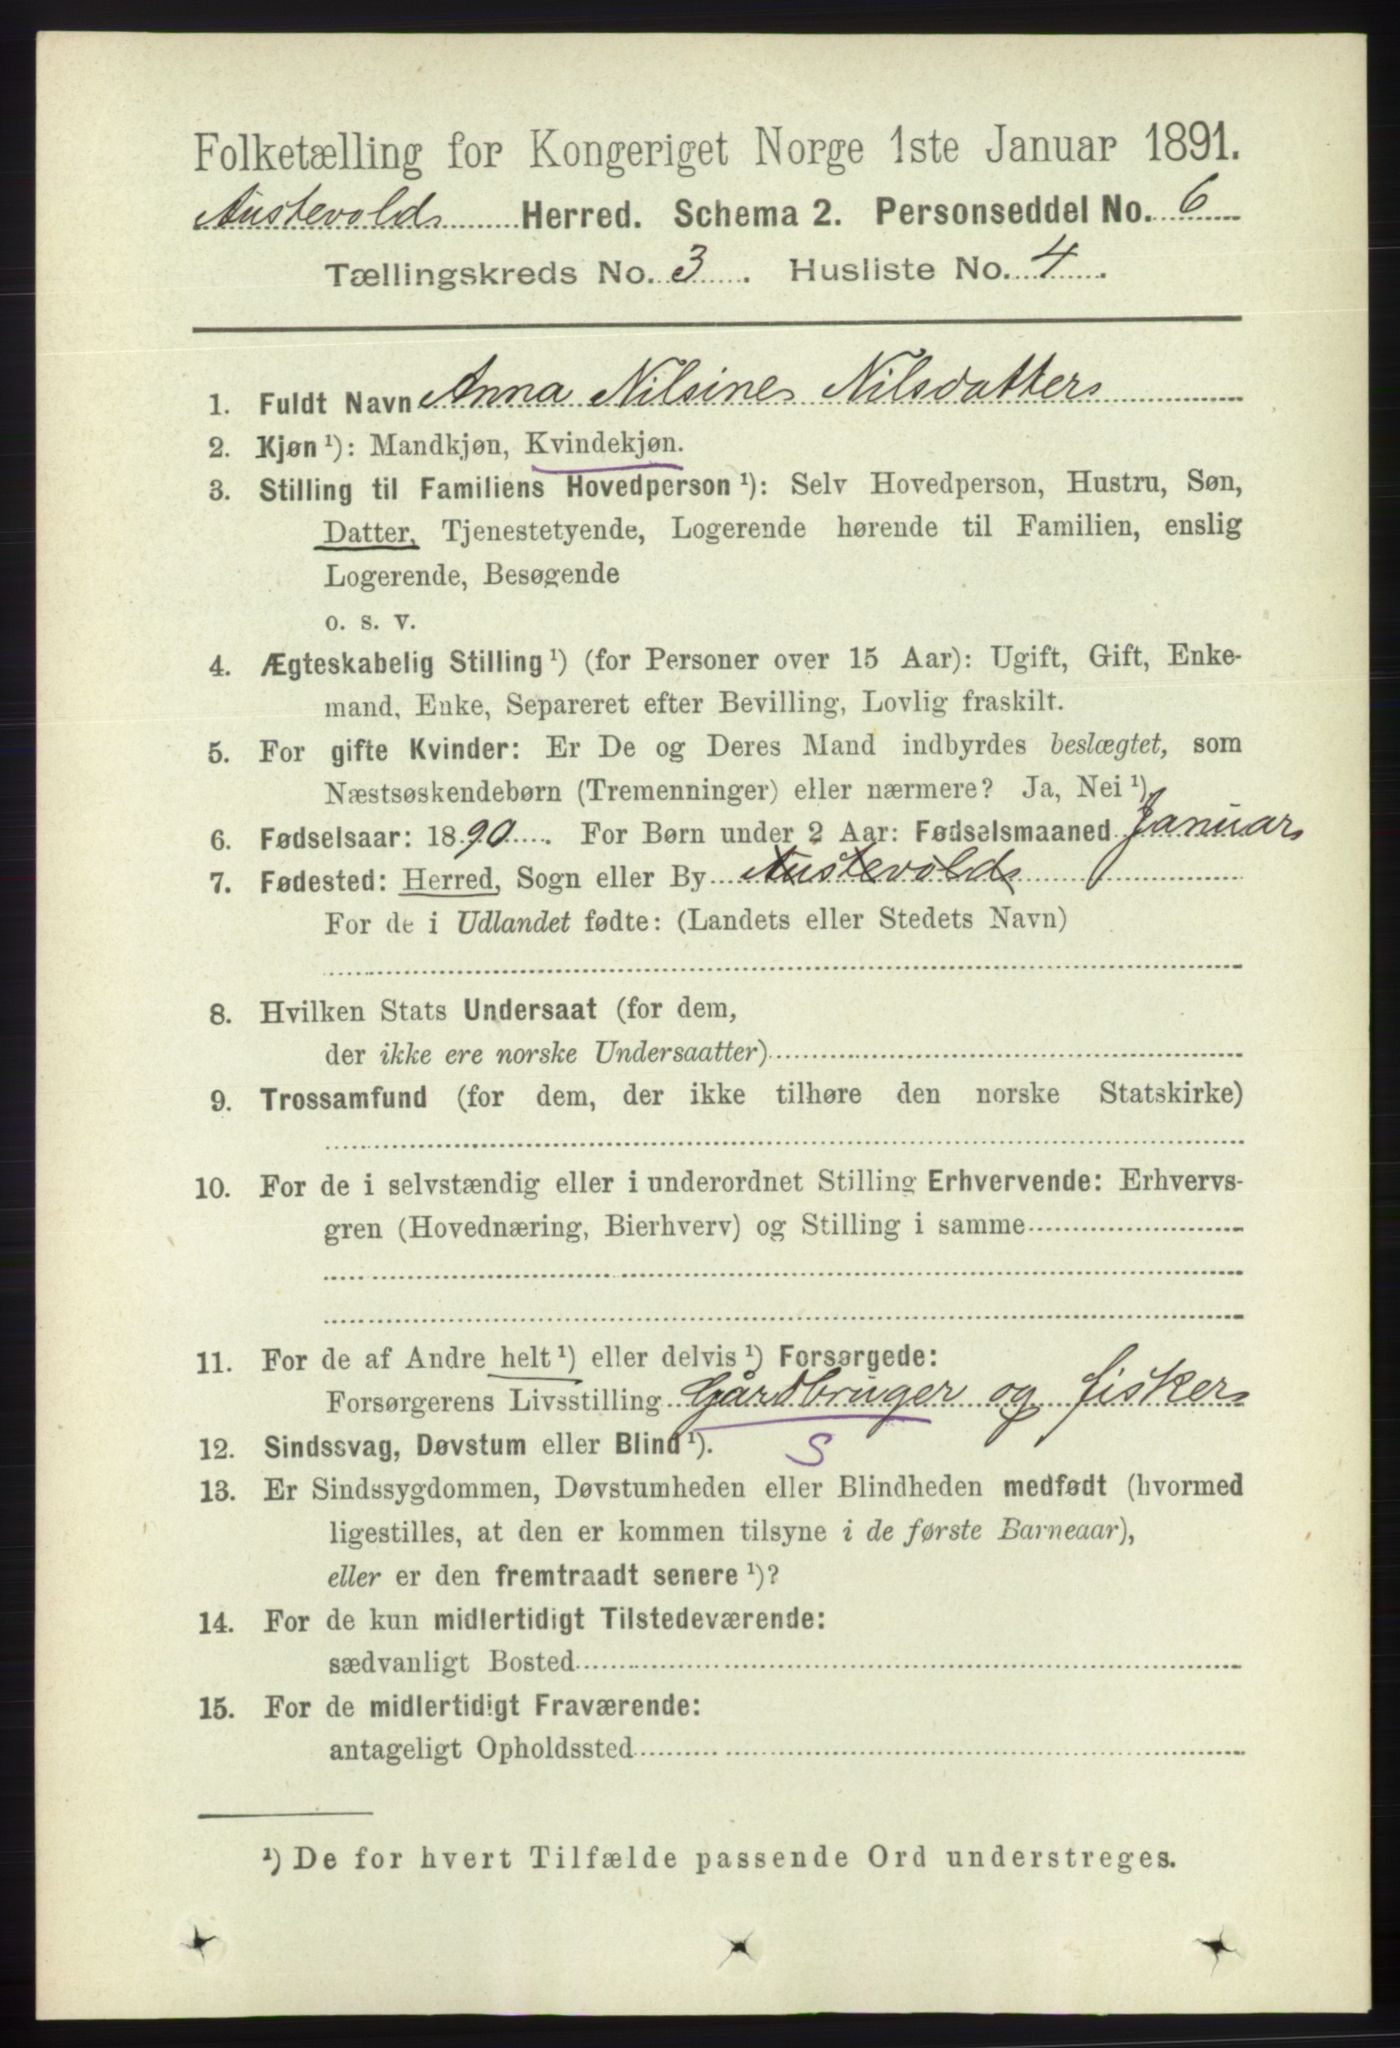 Folketælling for Kongeriget Norge 1ste Januar 1891.
Austevold Herred. Schema 2. Personseddel No. 6
Tællingskreds No. 3. Husliste No. 4.
1. Fuldt Navn Anna Nilsine Nilsdatter
2. Kjøn ¹): Mandkjøn, Kvindekjøn.
3. Stilling til Familiens Hovedperson ¹): Selv Hovedperson, Hustru, Søn,
Datter, Tjenestetyende, Logerende hørende til Familien, enslig
Logerende, Besøgende
o. s. v.
4. Ægteskabelig Stilling ¹) (for Personer over 15 Aar): Ugift, Gift, Enke-
mand, Enke, Separeret efter Bevilling, Lovlig fraskilt.
5. For gifte Kvinder: Er De og Deres Mand indbyrdes beslægtet, som
Næstsøskendebørn (Tremenninger) eller nærmere? Ja, Nei ¹)
6. Fødselsaar: 1890. For Børn under 2 Aar: Fødselsmaaned Januar
7. Fødested: Herred, Sogn eller By Austevold
For de i Udlandet fødte: (Landets eller Stedets Navn)
8. Hvilken Stats Undersaat (for dem,
der ikke ere norske Undersaatter)
9. Trossamfund (for dem, der ikke tilhøre den norske Statskirke)
10. For de i selvstændig eller i underordnet Stilling Erhvervende: Erhvervs-
gren (Hovednæring, Bierhverv) og Stilling i samme
11. For de af Andre helt ¹) eller delvis ¹) Forsørgede:
Forsørgerens Livsstilling Gårdbruger og fisker
12. Sindssvag, Døvstum eller Blind ¹). S
13. Er Sindssygdommen, Døvstumheden eller Blindheden medfødt (hvormed
ligestilles, at den er kommen tilsyne i de første Barneaar),
eller er den fremtraadt senere ¹)?
14. For de kun midlertidigt Tilstedeværende:
sædvanligt Bosted
15. For de midlertidigt Fraværende:
antageligt Opholdssted
¹) De for hvert Tilfælde passende Ord understreges.